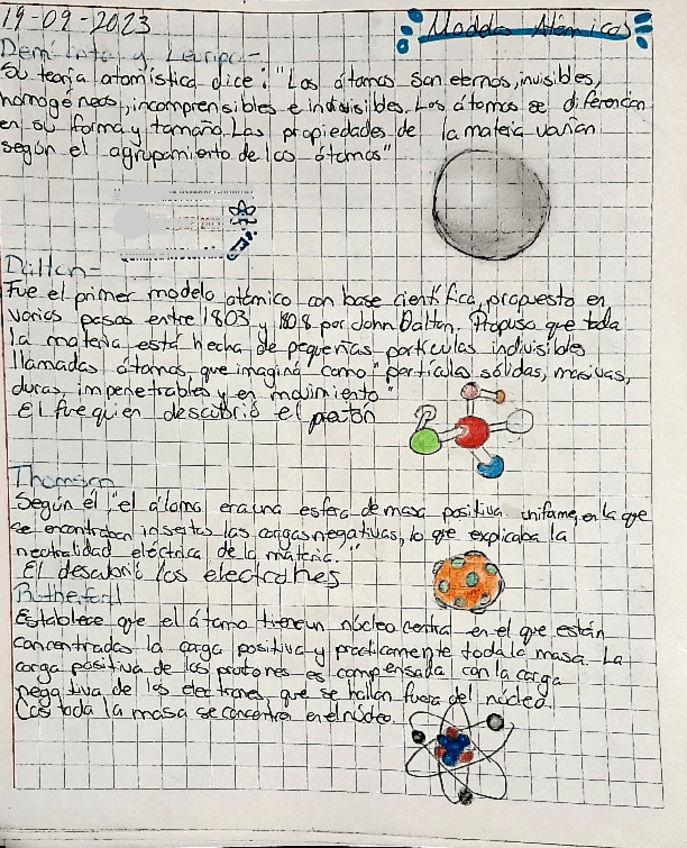 19-09-2023
Modelos Atómicos
Demócrito y Leucipo-
Su teoría atomística dice: "Los átomos son eternos, invisibles,
homogéneos, incomprensibles e indivisibles. Los átomos se diferencian
en su forma y tamaño. Las propiedades de la materia varían
según el agrupamiento de los átomos"
Dalton-
Fue el primer modelo atómico con base científica, propuesto en
varios pasos entre 1803 y 1808 por John Dalton. Propuso que toda
la materia está hecha de pequeñas partículas indivisibles
llamadas átomos que imaginó como "partículas sólidas, masivas,
duras, impenetrables y en movimiento"
El fue quien descubrió el protón
Thomson
Según él, "el átomo era una esfera de masa positiva uniforme, en la que
se encontraban insertas las cargas negativas, lo que explicaba la
neutralidad eléctrica de la materia."
El descubrió los electrones
Rutherford
Establece que el átomo tiene un núcleo central en el que están
concentradas la carga positiva y practicamente toda la masa. La
carga positiva de los protones es compensada con la carga
negativa de los electrones que se hallan fuera del núcleo.
Casi toda la masa se concentra en el núcleo.